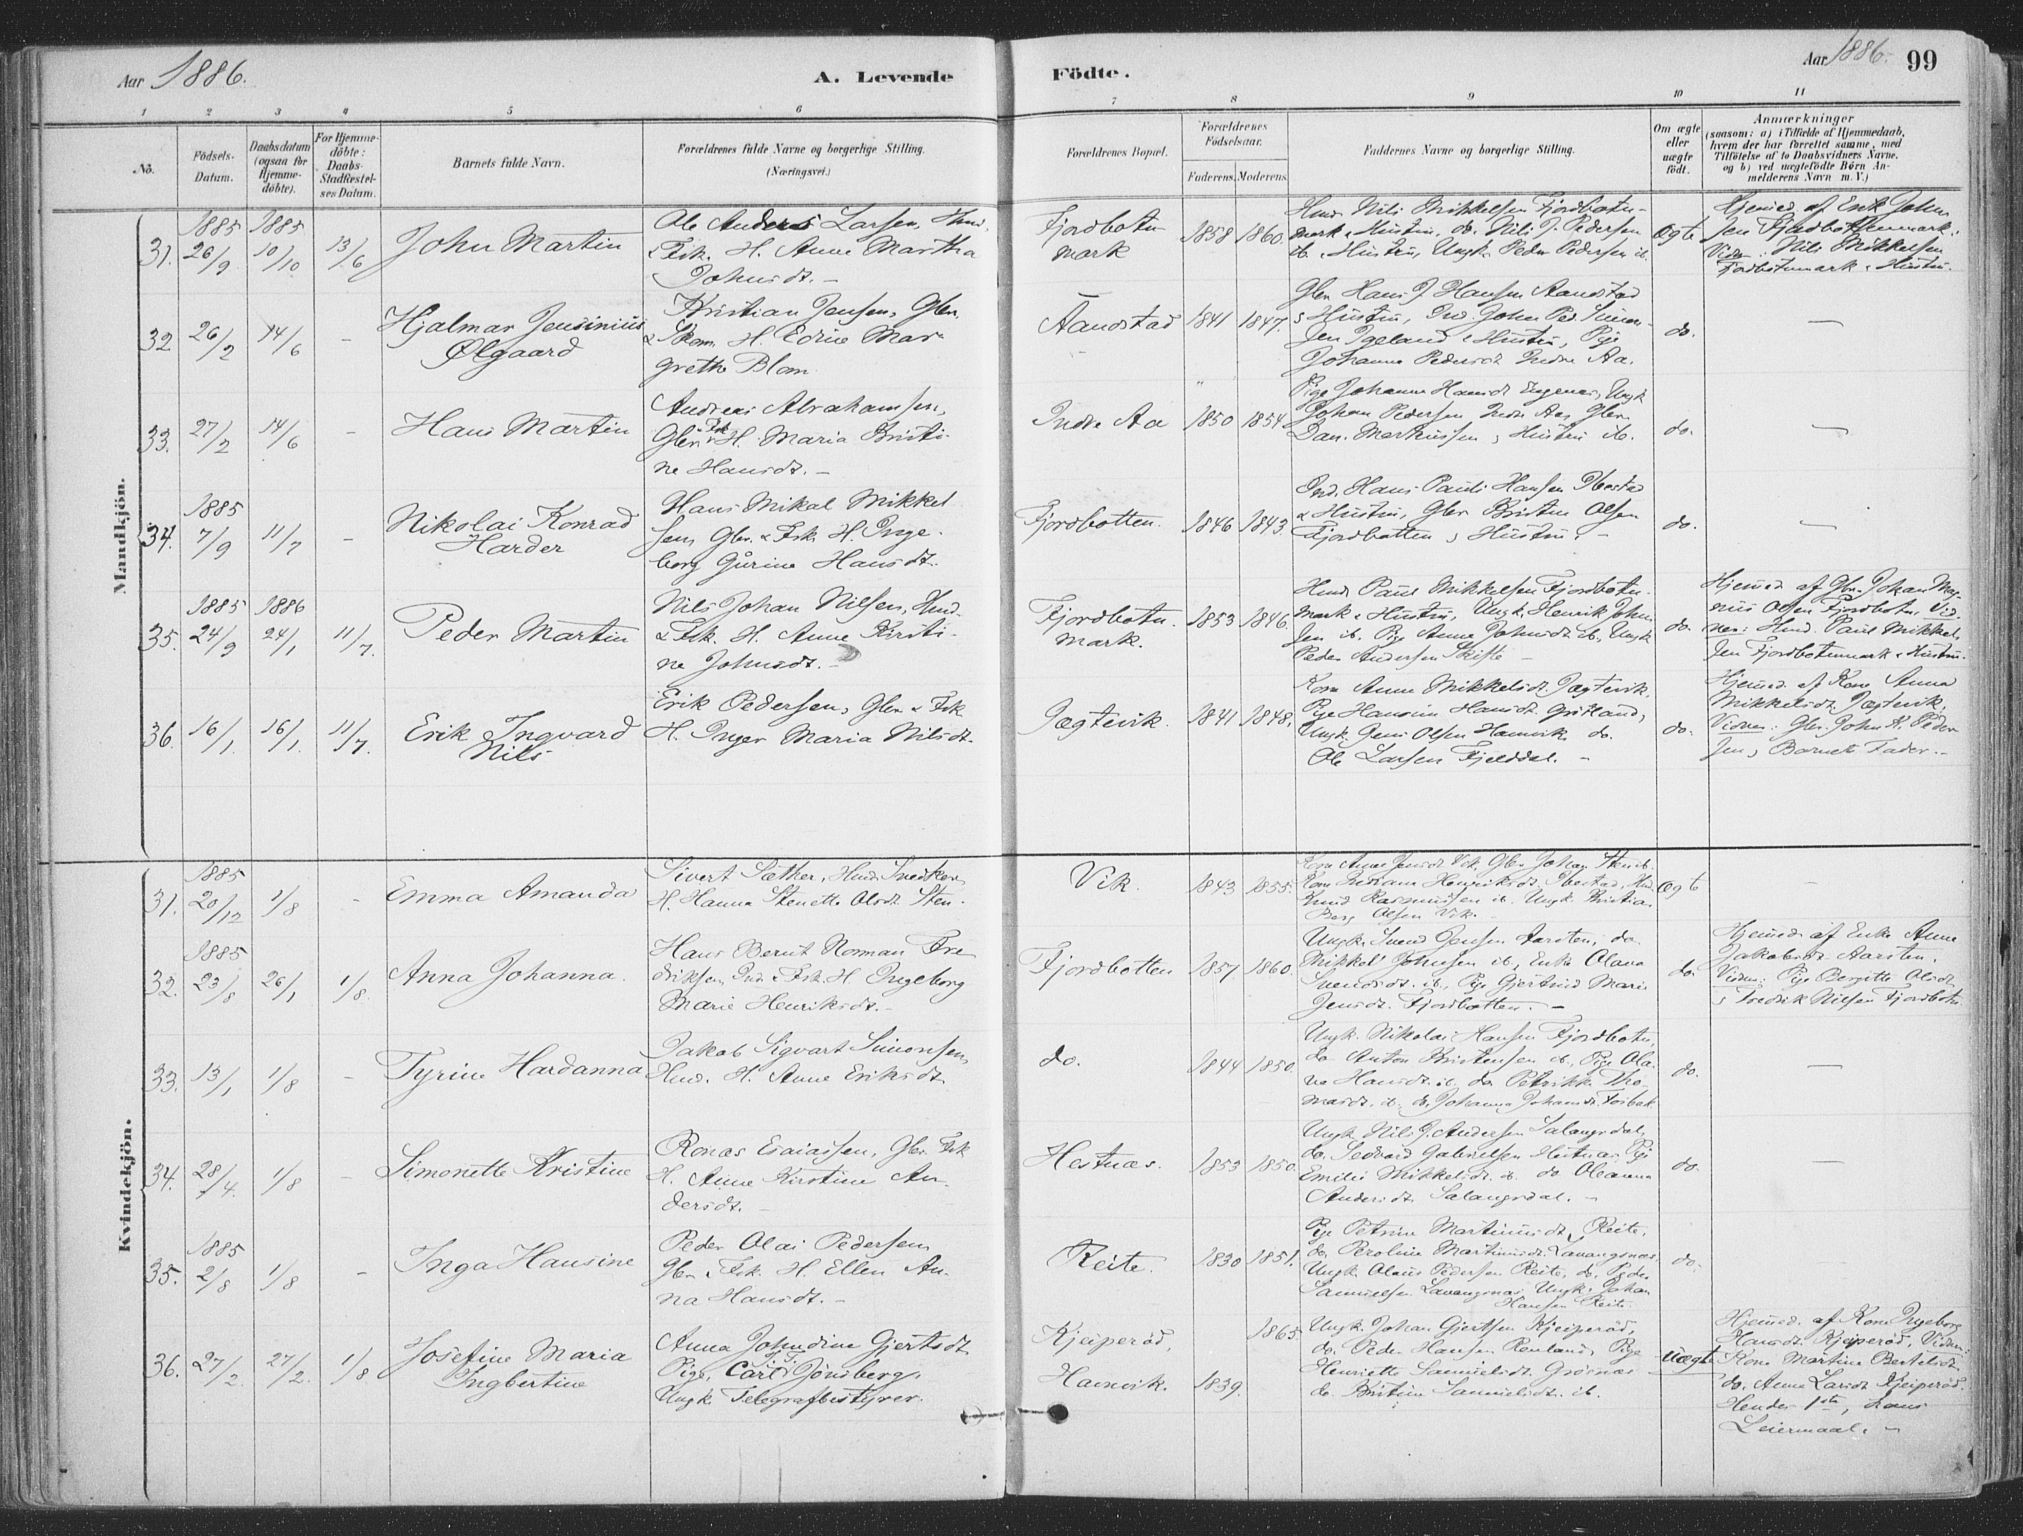 Aar 1886. A. Levende Födte. Aar 1886. 99
1 2 3 4 5 6 7 8 9 10 11
No. Födsels-Datum. Daabsdatum (ogsaa for Hjemme-döbte). For Hjemme-döbte: Daabs-Stadfæstel-ses Datum. Barnets fulde Navn. Forældrenes fulde Navne og borgerlige Stilling. (Næringsvei.) Forældrenes Bopæl. Forældrenes Födselsaar. Faderens. Moderens. Faddernes Navne og borgerlige Stilling. Om ægte eller uægte födt.
Anmærkninger
(saasom: a) i Tilfælde af Hjemmedaab,
hvem der har forrettet samme, med
Tilföielse af to Daabsvidners Navne.
og b) ved uægtefödte Börn An-
melderens Navn m. V.)
Mandkjön.
31. 1885 26/9 1885 10/10 13/6 John Martin
Ole Anders Larsen, Hmd.
& Fsk. H. Anne Martha
Johnsdt. -
Fjordbotn
mark 1858 1860.
Hmd. Nils Mikkelsen Fjordbotn-
mark & Hustru, do. Nils J. Pedersen
ib. & Hustru, Ungk. Peder Pedersen ib.
Ægte
Hjemmed. af Enk. John
sen Fjordbotnmark.
Vidner: Nils Mikkelsen
Fjordbotnmark & Hustru.
32 26/2 14/6 - Hjalmar Jensinius
Ølgaard
Kristian Jensen, Gbr.
& Skom. H. Edine Mar-
grethe Blom
Aandstad 1841 1847.
Gbr. Hans J Hansen Aandstad
& Hustru, Ind. John Ped. Simon-
sen & Hustru, Pige
Johanna Pedersdt. Indre Aa.
do. -
33. 27/2 14/6 - Hans Martin
Andreas Abrahamsen,
Gbr. & Fsk H. Maria Kristi-
ne Hansdt. -
Indre Aa 1850 1854.
Pige Johanna Hansdt Engenæs, Ungk
Johan Pedersen Indre Aa, Gbr.
Dan. Markussen & Hustru ib.
do. -
34. 1885 7/9 11/7 - Nikolai Konrad
Harder
Hans Mikal Mikkel
sen, Gbr. & Fsk. H. Inge-
borg Gurine Hansdt.
Fjordbotten. 1846 1843.
Ind. Hans Pauli Hansen Ibestad
& Hustru, Gbr. Kristen Olsen
Fjordbotten & Hustru. -
do. -
35. 1885 24/9 1886 24/1 11/7. Peder Martin
Nils Johan Nilsen, Hmd.
& Fsk. H. Anne Kirsti-
ne Johnsdt. -
Fjordbotn.
mark. 1853 1846.
Hmd Paul Mikkelsen Fjordbotn-
mark & Hustru, Ungk. Henrik John
sen ib. Pige Anne Johnsdt ib. Ungk
Peder Andersen Skifte -
do.
Hjemmed. af Gbr. Johan Mag-
nus Olsen Fjordbotn. Vid-
ner: Hmd. Paul Mikkel
sen Fjordbotnmark & Hustru.
36. 16/1. 16/1. 11/7. Erik Ingvard
Nils
Erik Pedersen, Gbr. & Fsk
H. Inger Maria Nilsdt.
Jægtevik. 1841 1848.
Kone Anne Mikkelsdt. Jægtevik.
Pige Hansine Hansdt. Grötland,
Ungk. Olsen Hamvik. do.
Ole Larsen Fjelddal. -
do.
Hjemmed. af Kone Anna
Mikkelsdt. Jægtevik.
Vidner: Gbr. John A. Peder
sen & Barnets Fader. -
Kvindekjön.
31. 1885 20/12 1/8 - Emma Amanda
Sivert Sæther, Hmd. Snedker
H. Hanna Stenette Olsdt. Sten.
Vik. 1843 1855.
Kone Anne Jensdt Vik, Gbr. Johan ib.
Kone Henriksdt. Ibestad, Hmd.
Knud Rasmussen ib. Ungk Kristian
Berg Olsen Vik. -
Ægte -
32. 1885 23/8 26/1 1/8. Anna Johanna.
Hans Bernt Norman Fre
driksen, Ind. & Fsk. H. Ingeborg
Marie Henriksdt. -
Fjordbotten 1857. 1860.
Ungk. Svend Jensen Aarsten, do
Mikkel Johnsen ib, Enke Olava
Svendsdt. ib, Pige Gjertrud Mari
Jensdt. Fjordbotten. -
do.
Hjemmed. af Enke Anne
Jakobsdt. Aarsten.
Vidner: Pige Bergitte Olsdt.
& Fredrik Nilsen Fjordbotn.
33. 13/1 1/8 - Tyrine Hardanna
Jakob Sigvart Simonsen,
Hmd. H. Anne Eriksdt.
do. 1844 1850.
Ungk. Nikolai Hansen Fjordbotn,
do Anton Kristensen ib, Pige Ola-
va Hansdt. ib. do Petrikke Tho-
masdt. ib. do. Johanna Johansdt.
do. -
34. 28/4. 1/8 - Simonette Kristine
Ronas Esaiassen, Gbr. Fsk
H. Anne Kirstine An-
dersdt. -
Hestnæs. 1853 1850.
Ungk Nils J. Andersen Salangsdal,
do. Sedvard Gabrielsen Hestnæs. Pige
Emilie Mikkelsdt. ib. do Oleanna
Andersdt. Salangsdal. -
do. -
35. 1885 2/8 1/8 - Inga Hansine
Peder Olai Pedersen
Gbr. & Fsk. H. Ellen An-
na Hansdt. -
Reite. 1830 1851.
Pige Petrine Martinusdt. Reite,
do. Peroline Martinusdt. Lavangsnæs
Ungk Olaus Pedersen Reite, do. Peder
Samuelsen Lavangsnæs, Ungk. Johan
Hansen Reite.
do.
36. 27/2. 27/2. 1/8 Josefine Maria
Ingbertine
Anna Johndine Gjertsdt.
Pige, Carl J. F. Jönsberg,
Ungk. Telegrafbestyrer.
Kjeiperöd, 1865
Hamvik. 1839.
Ungk Johan Gjertsen Kjeiperöd,
do. Peder Hansen Renland, Pige
Henriette Samuelsdt. Grönnæs
do. Kristine Samuelsdt. ib.
Uægte
Hjemmed. af Kone Ingeborg
Hansdt. Kjeiperöd, Vidner:
Kone Martine Bertelsdt.
do. Anne Larsdt Kjeiperöd.
Hendes 1ste, hans
Leiermaal. -